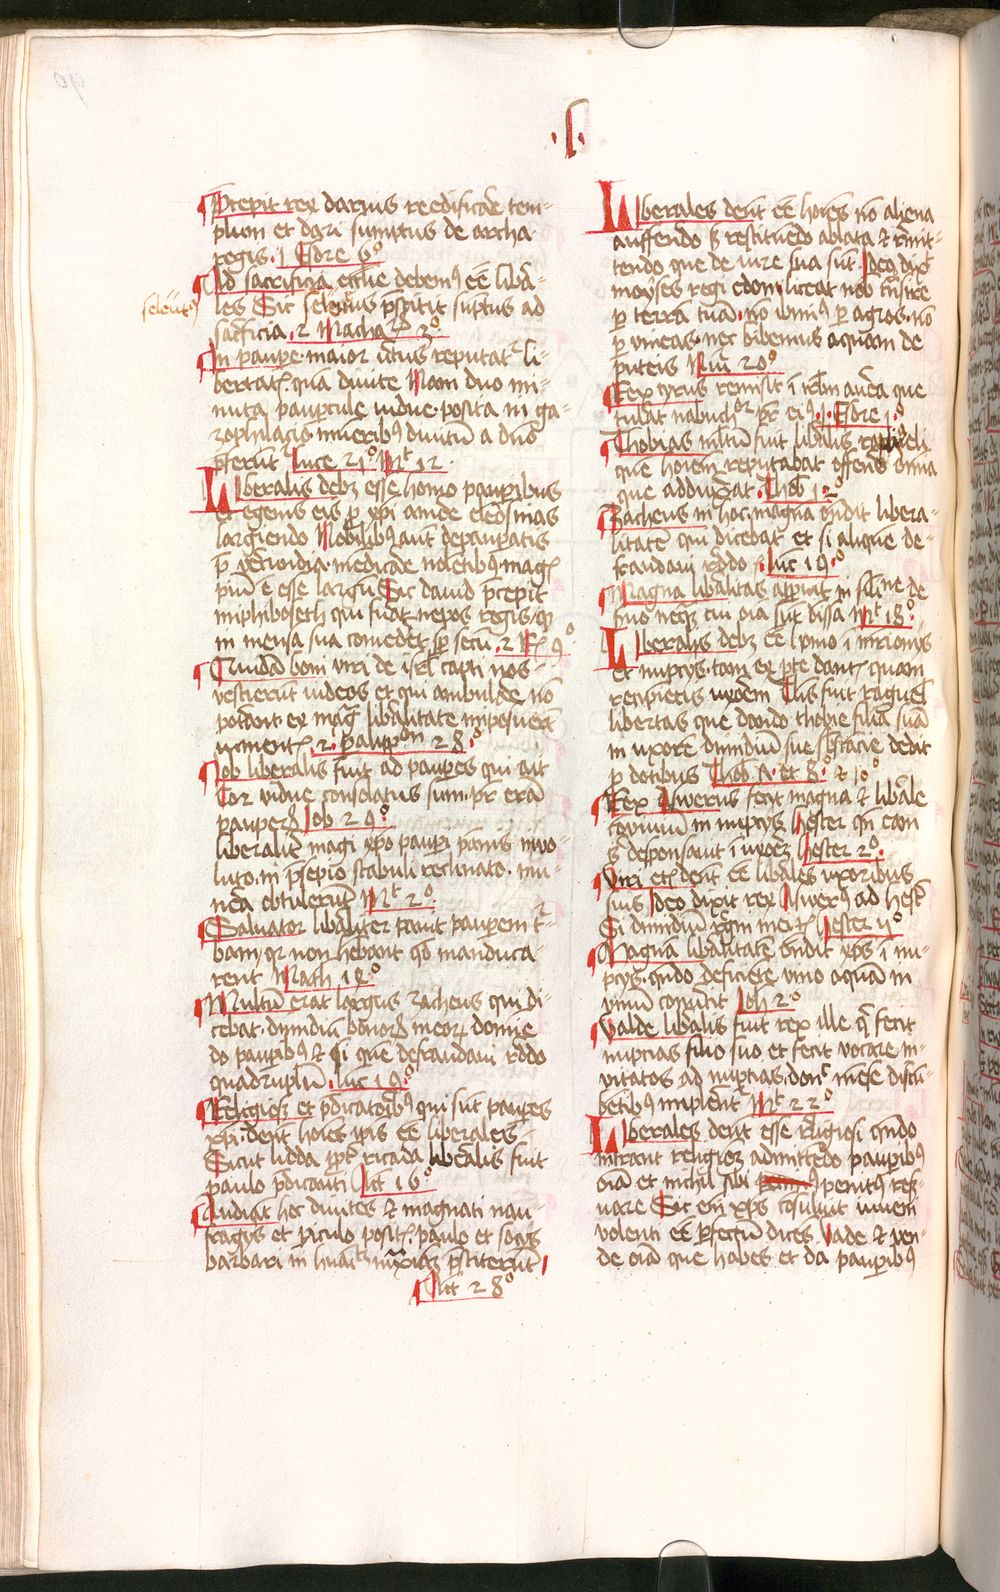 .l.
Precepit rex darius reedificare tem-
plum et dari sumptus de archa
regis . 1 Esdre 6°
Ad sacrificia ecclesie debemus esse libera-
seleucus
les Sic seleucus prestitit suptus ad
sacrificia . 2 Machabeorum 2°
In paupere maior virtus reputatur li-
bertatis quam divite Nam duo mi-
nuta paupercule vidue posita in ga-
zophilacio muneribus divitum a domino
preferuntur Luce 21° Mr 12
Liberalis debet esse homo pauperibus
et egenis eis pro christi amore eleosinas
largiendo Nobilibus autem depauperatis
pro verecundia mendicare nolentibus magis
pium est esse largum Sic david precepit
miphiboseth qui fuerat nepos regis quod
in mensa sua comederet semper secum . 2 Re 9°
Quidam boni viri de israel capti nos-
vestierunt iudeos et qui ambulare non
poterant ex magna liberalitate imposuerunt
iumentis . 2 . paralipon 28°
Job liberalis fuit ad pauperes qui ait
Cor vidue consolatus sum . pater eram
pauperum Job 29°
liberaliter magi christo pauperi pannis invo-
luto in presepio stabuli reclinato . mu-
nera obtulerunt Mt 2°
Salvator liberaliter pavit pauperem tur-
bam quia non habebant quod manduca
rent Math 15°
Multum erat largus zacheus qui di-
cebat . dimidium bonorum meorum domine
do pauperibus et si quem defraudavi reddo
quadruplum . luc 19°
Religiosis et predicatoribus qui sunt pauperes
christi . debent homines ipsis esse liberales
Sicut lidda purpuricada liberalis fuit
paulo predicanti Act 16°
Audiat hec divites et magnati nau-
fragis et periculo positis . paulo et sociis
barbari in humanitate maxima prestiterunt
Act 28°
Liberales debent esse homines non aliena
aufferendo sed restituendo ablata et remit-
tendo que de iure sua sunt . Ideo dixit
moyses regi edom liceat nobis transire
per terram tuam . non ibimus per agros . non
per vineas . nec bibemus aquam de
puteis Nu 20°
Rex cyrus remisit in ierusalem aurea que
tulerat nabuchodonosor pater eius . 1 . Esdre 1°
Thobias multum fuit liberalis
que hominem reputabat offerens omnia
que adduxerat . Thob 12°
Zacheus in hoc magnam ostendit libera-
litatem qui dicebat et si aliquem de-
fraudavi reddo . luc 19°
Magna liberalitas apparuit in
suo cui omnia sunt dimissa Mt 18°
Liberalis debet esse homo in matrimoniis
et nuptiis . tam ex parte dantis quam
recipientis uxorem Talis fuit raguelis
libertas que dando thobie filiam suam
in uxorem dimidium sue substancie dedit
pro dotibus Thob . et 8° et 10°
Rex Aswerus fecit magna et liberale
convivium in nuptiis hester quando eam
desponsavit in uxorem hester 2°
Viri etiam debent esse liberales uxoribus
suis Ideo dixit rex Aswerus ad hester
Si dimidium regni mei hester 5°
Magnam liberalitatem ostendit christus in nu-
ptiis quando deficiente vino aquam in
vinum convertit Joh 2°
Valde liberalis fuit rex ille qui fecit
nuptias filio suo et fecit vocare in-
vitatos ad nuptias . donec mense discu-
bentibus implentur Mt 22°
Liberales debent esse religiosi quando
intrant religionem admittendo pauperibus
omnia et nichil sibi penitus reser-
vare Sic enim christus consuluit iuveni
volenti esse perfectum dicens Vade et ven-
de omnia que habes et da pauperibus